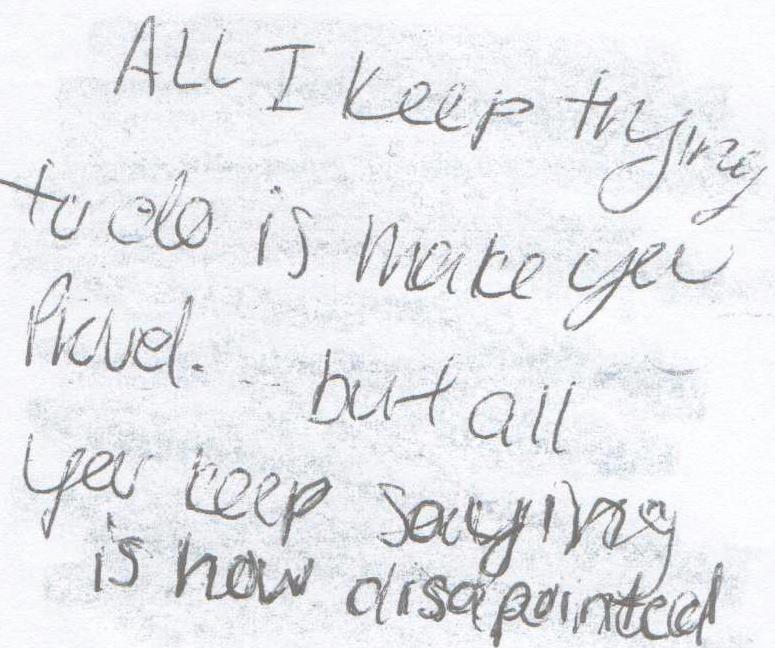 ALL I keep trying
to do is make you
Proud.
but all
you keep saying
is how disapointed